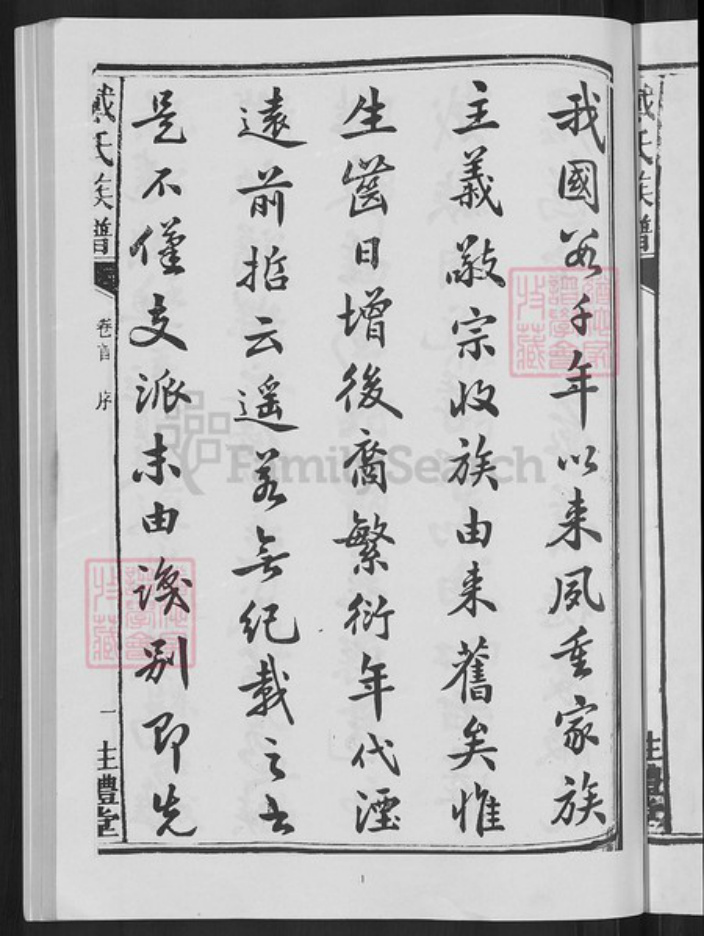 我國數千年以来夙重家族
主義敬宗收族由来舊矣惟
生齒日增後裔繁衍年代湮
遠前哲云遥若無紀載之書
是不僅支派末由識别即先
戴氏族譜
卷首 序
一
生禮堂
FamilySearch
1